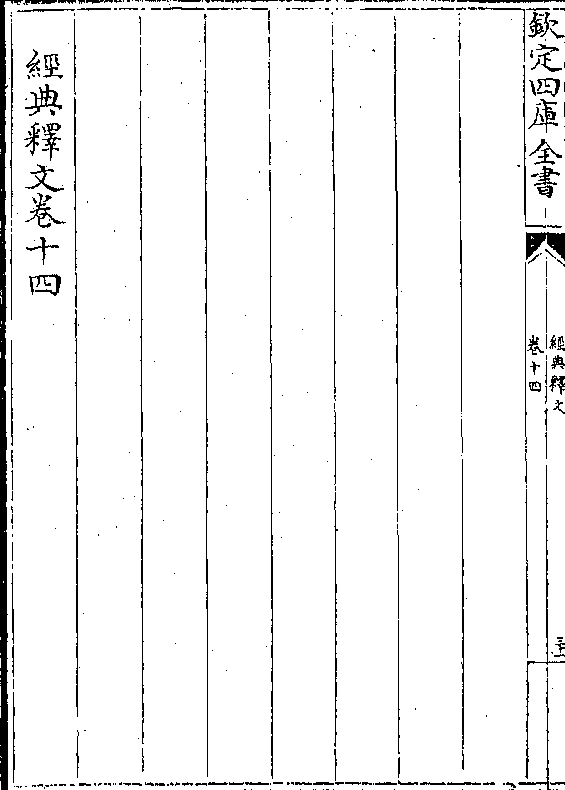 欽定四庫全書
經典釋文
卷十四
經典釋文卷十四